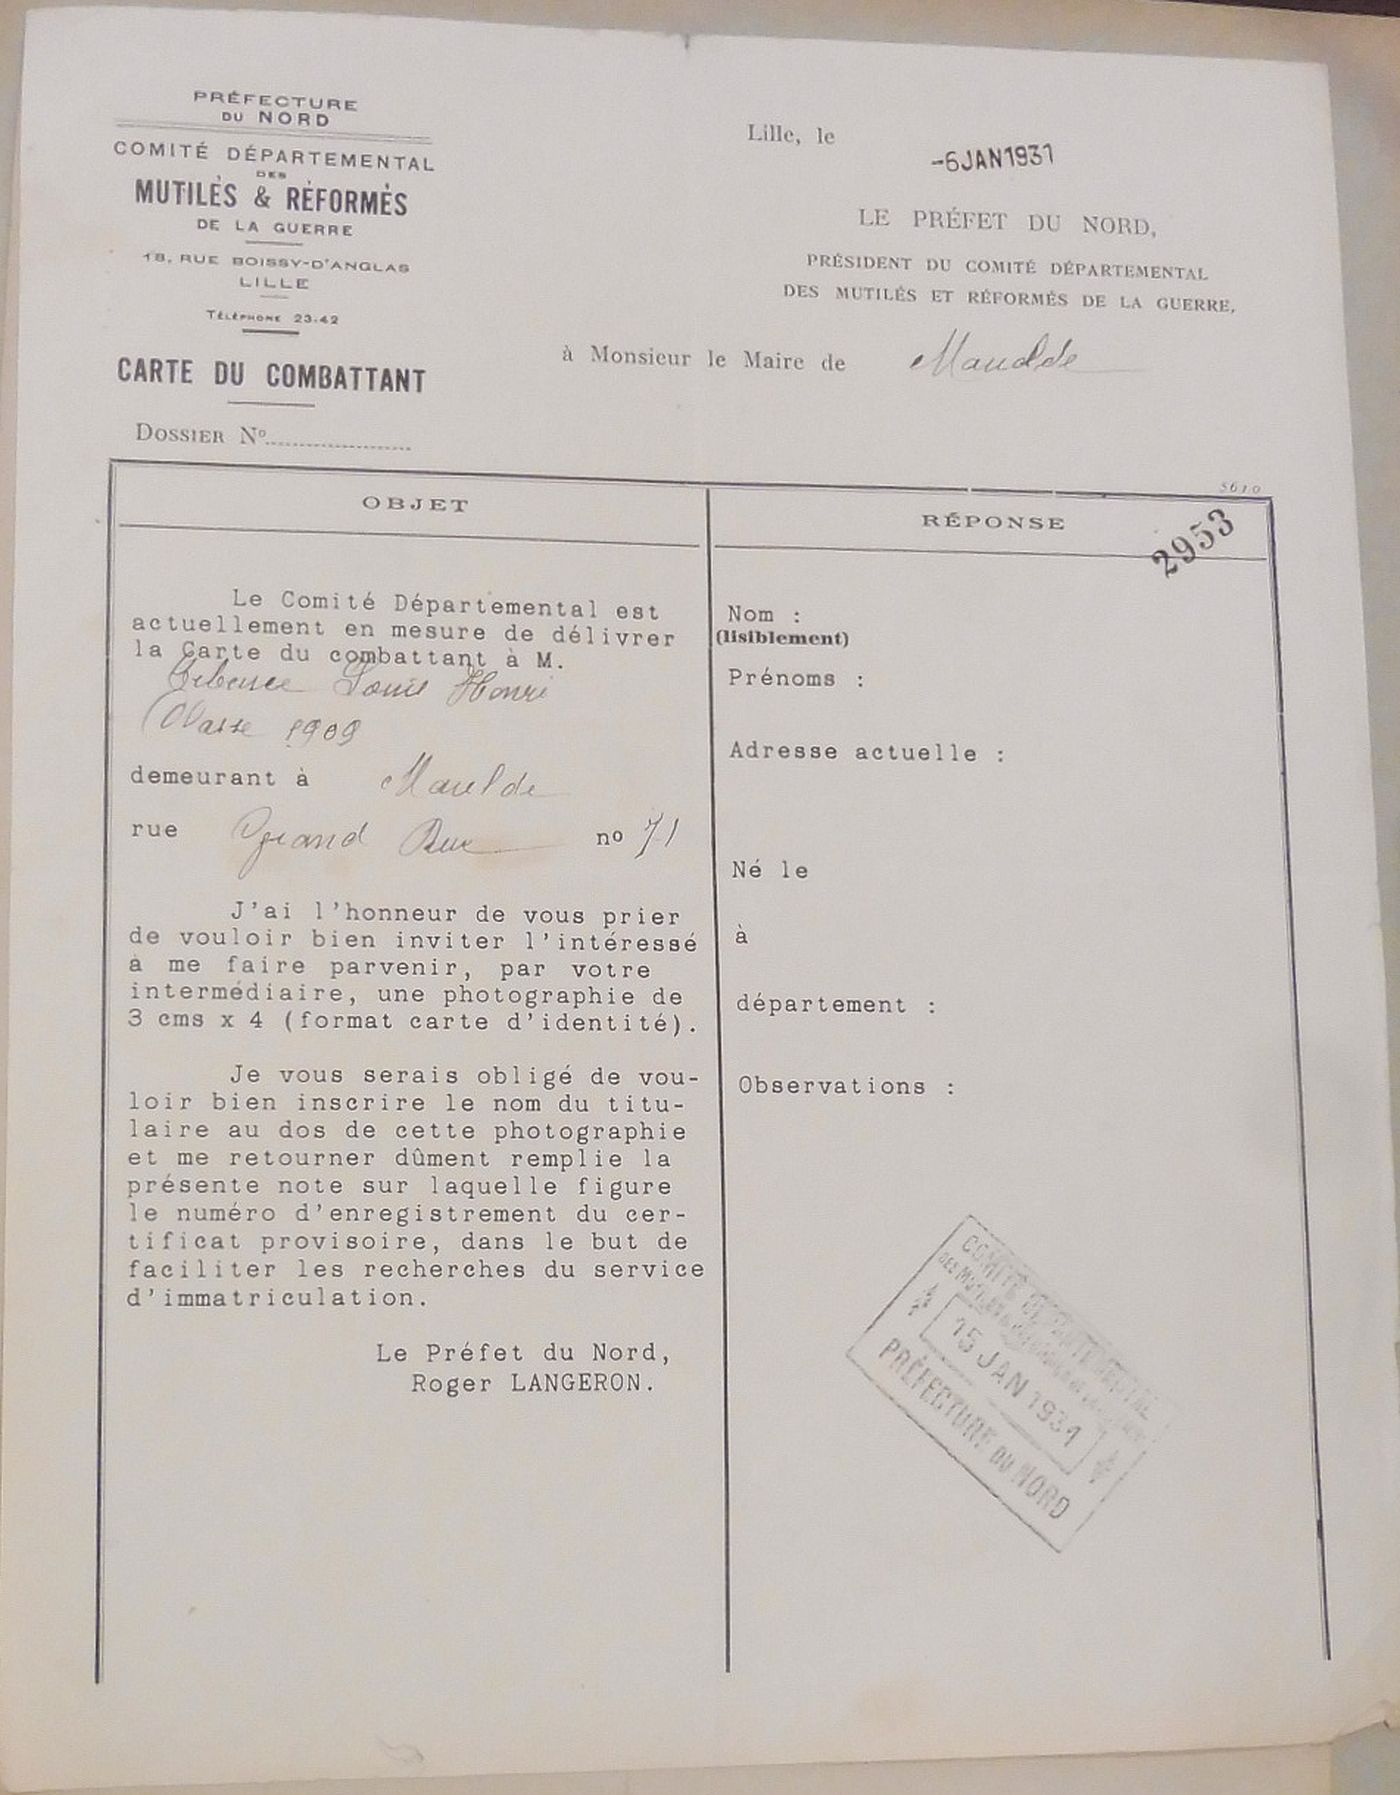 PRÉFECTURE
DU NORD
COMITÉ DÉPARTEMENTAL
DES
MUTILÉS & RÉFORMÉS
DE LA GUERRE
18, RUE BOISSY-D'ANGLAS
LILLE
TÉLÉPHONE 23.42
CARTE DU COMBATTANT
DOSSIER No
Lille, le
-6 JAN 1931
LE PRÉFET DU NORD,
PRÉSIDENT DU COMITÉ DÉPARTEMENTAL
DES MUTILÉS ET RÉFORMÉS DE LA GUERRE,
à Monsieur le Maire de Maulde
OBJET
Le Comité Départemental est
actuellement en mesure de délivrer
la Carte du combattant à M.
Louis Henri
Classe 1909
demeurant à Maulde
rue Grand Rue no 71
J'ai l'honneur de vous prier
de vouloir bien inviter l'intéressé
à me faire parvenir, par votre
intermédiaire, une photographie de
3 cms x 4 (format carte d'identité).
Je vous serais obligé de vou-
loir bien inscrire le nom du titu-
laire au dos de cette photographie
et me retourner dûment remplie la
présente note sur laquelle figure
le numéro d'enregistrement du cer-
tificat provisoire, dans le but de
faciliter les recherches du service
d'immatriculation.
Le Préfet du Nord,
Roger LANGERON.
5610
RÉPONSE
2953
Nom :
(lisiblement)
Prénoms :
Adresse actuelle :
Né le
à
département :
Observations :
COMITÉ DÉPARTEMENTAL
15 JAN 1931
PRÉFECTURE DU NORD